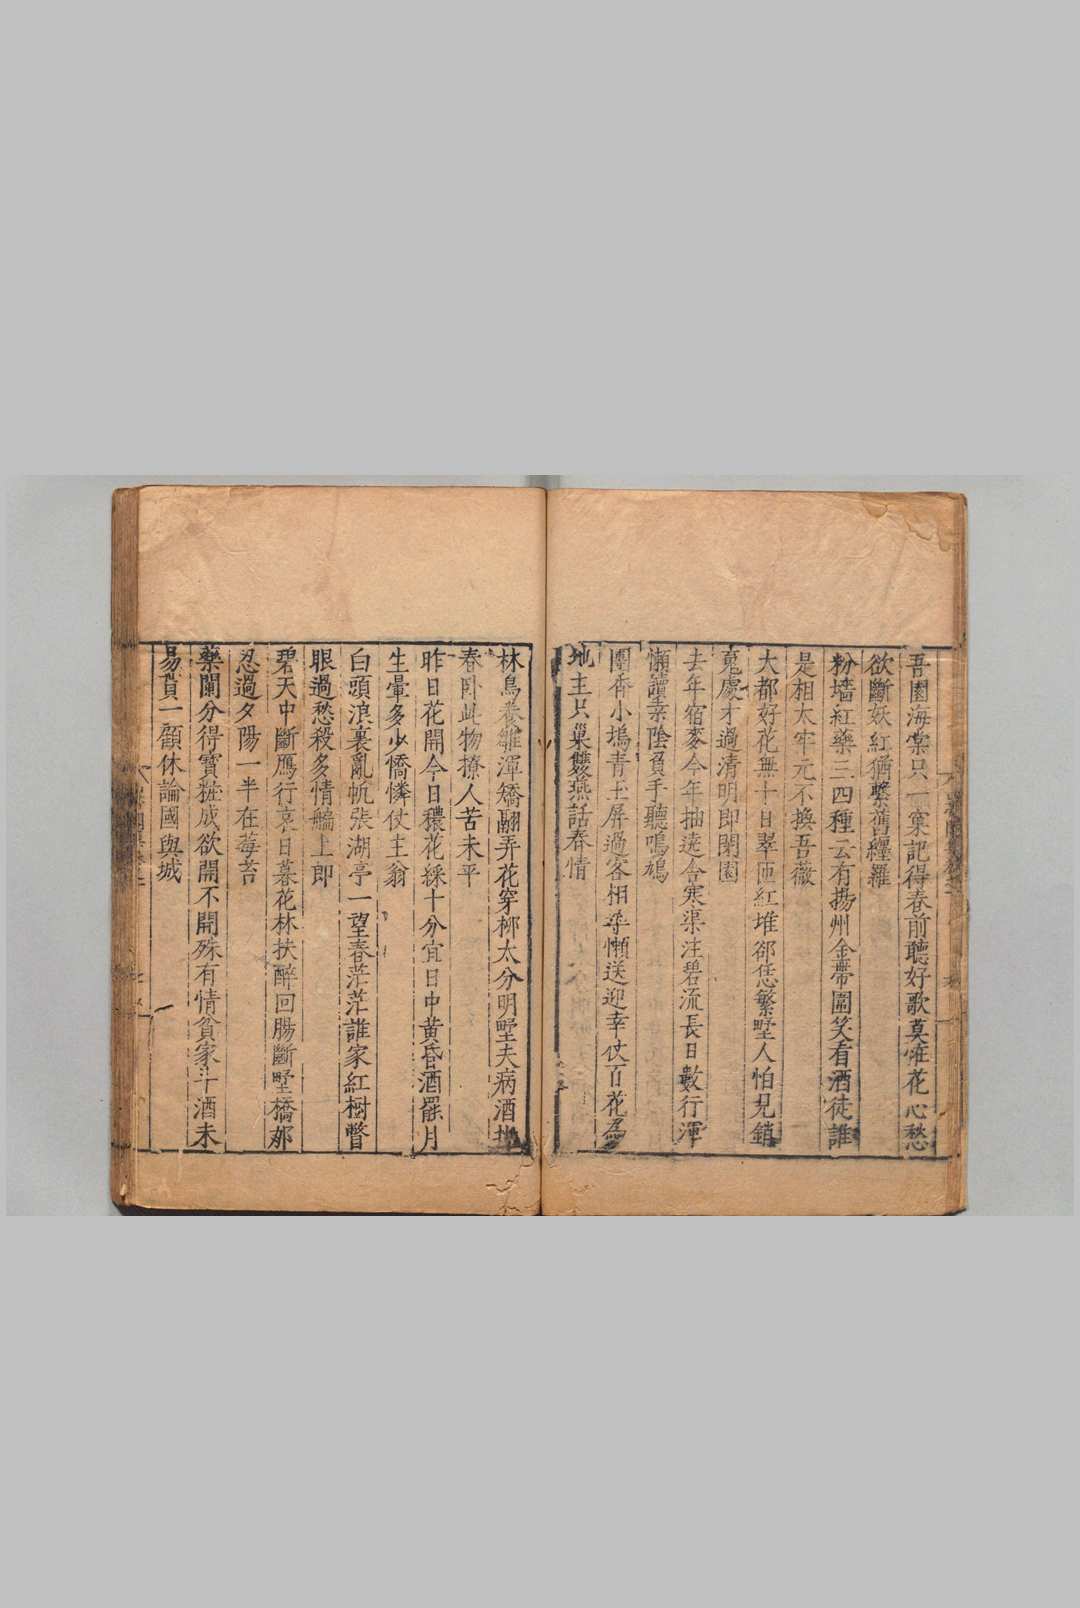 吾園海棠只一窠記得春前聽好歌莫惟花心愁
欲斷妖紅猶繫舊纏羅
粉墻紅藥三四種云有揚州金帶圍笑看酒徒誰
是相太牢元不換吾薇
大都好花無十日翠匝紅堆郤恁繁墅人怕見銷
䰟處才過清明即閉園
去年宿麥今年抽遶舍寒渠注碧流長日數行渾
懶讀桒陰負手聽鳴鳩
團香小塢青玉屏過客相尋懶送迎幸仗百花為
地主只巢雙燕話春情
林鳥養雛渾矯翮弄花穿桺太分明墅夫病酒扶
春卧此物撩人苦未平
昨日花開今日穠花綵十分宜日中黄昏酒罷月
生暈多少憍憐仗主翁
白頭浪裏亂帆張湖亭一望春茫茫誰家紅樹瞥
眼過愁殺多情艑上郎
碧天中斷鴈行哀日暮花林扶醉回腸斷墅橋那
忍過夕陽一半在莓苔
藥闌分得寳粧成欲開不開殊有情貧家斗酒未
易貰一顧休論國與城